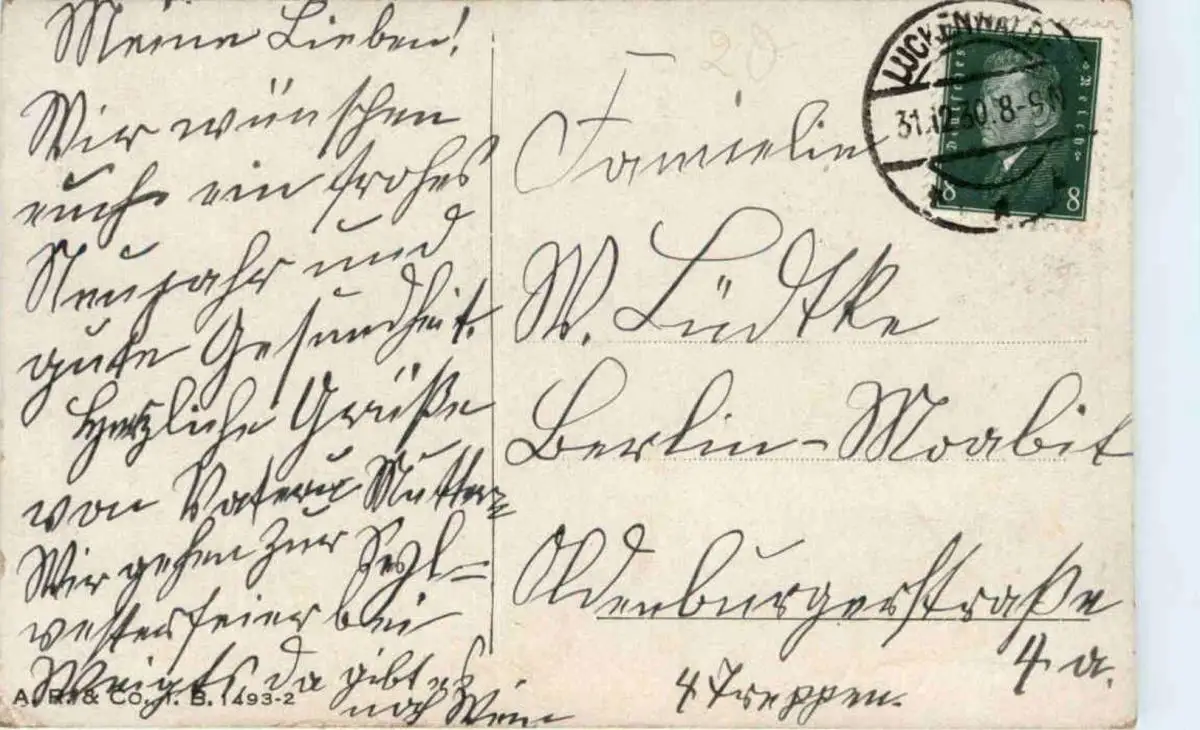 Meine Lieben!
Wir wünschen
euch ein frohes
Neujahr und
gute Gesundheit.
Herzliche Grüße
von Vater u Mutter
Wir gehen zur Seyl=
vesterfeier bei
Weigts da gibt es
noch Wein
A. R. & CO. I. B. 1493-2
20
Familie
W. Lüdtke
Berlin-Moabit
Oldenburgerstraße
4 a.
4 Treppen.
LUCKENWALDE
31.12.30.8-9N
Deutsches Reich
8 8